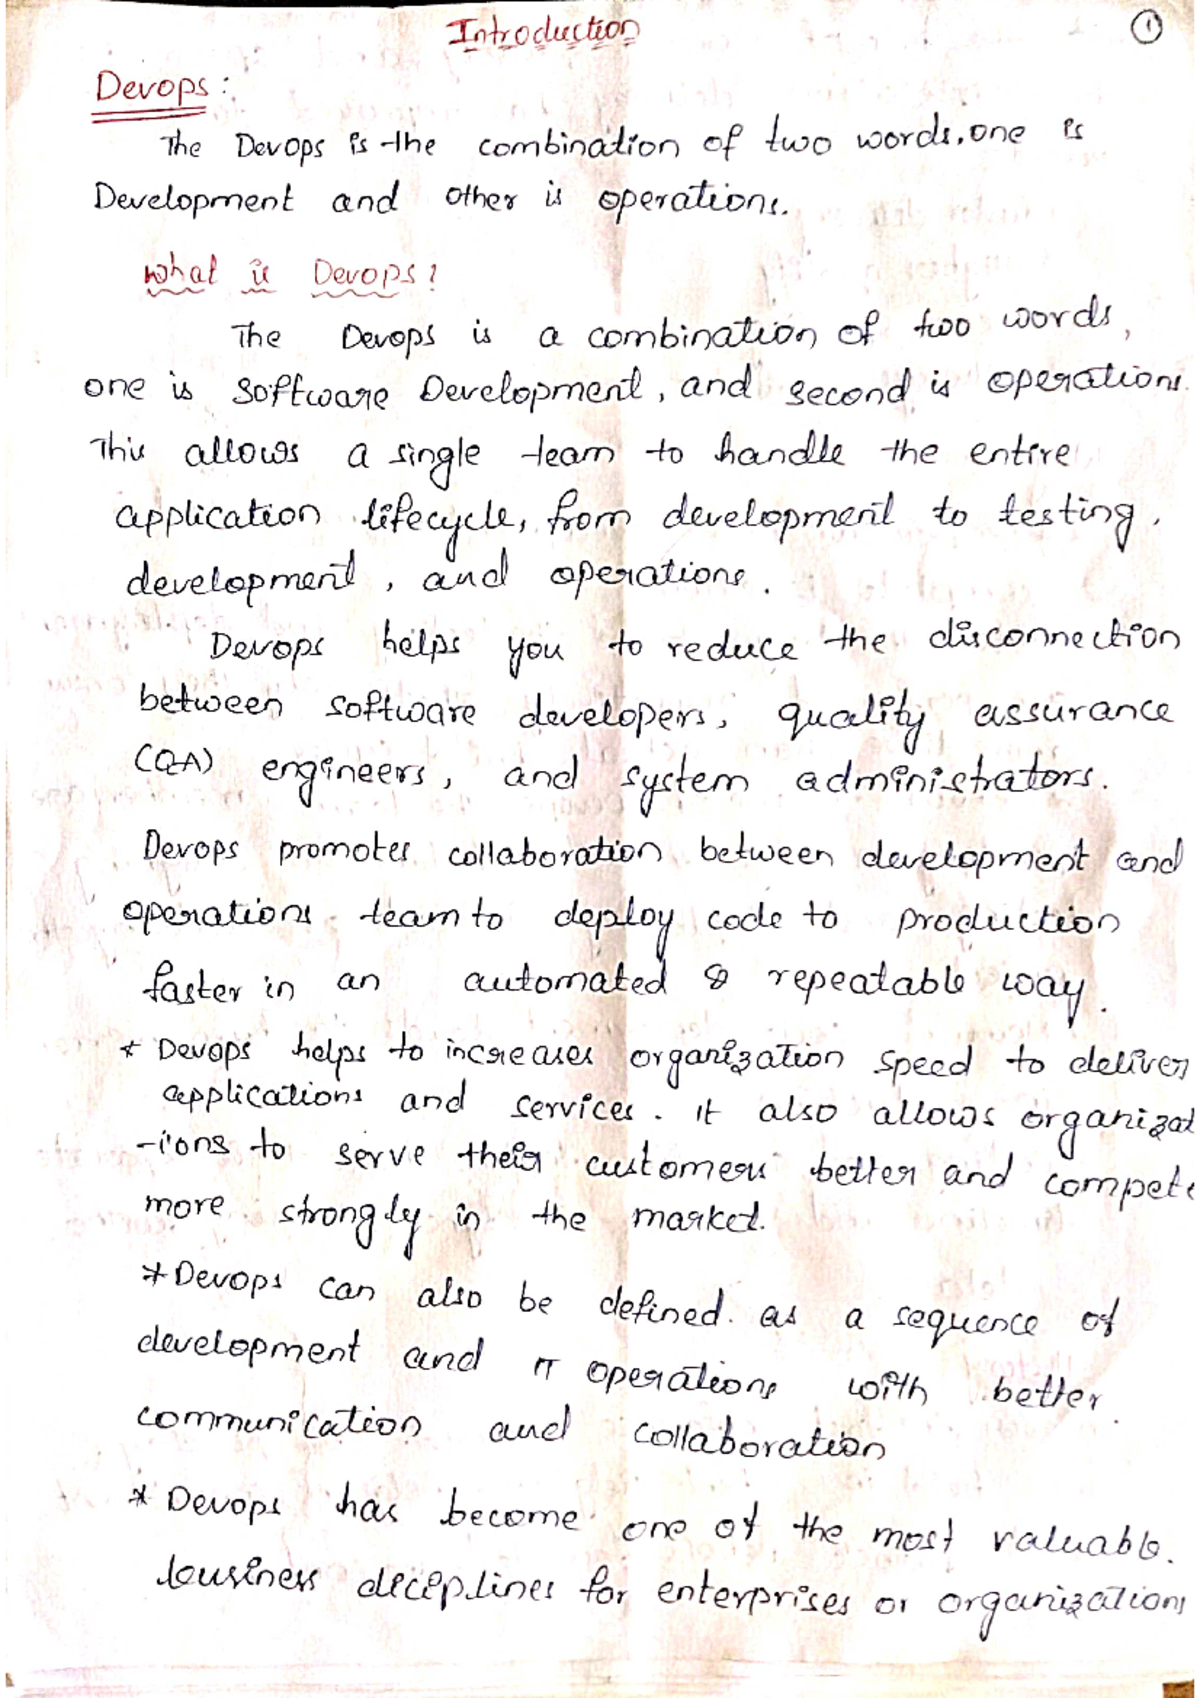 Introduction
1
Devops :
The Devops is the combination of two words. one is
Development and other is operations.
What is Devops?
The Devops is a combination of two words,
one is Software Development, and second is operations.
This allows a single team to handle the entire
application lifecycle, from development to testing,
development, and operations.
Devops helps you to reduce the disconnection
between software developers, quality assurance
(QA) engineers, and system administrators.
Devops promotes collaboration between development and
operations team to deploy code to production
faster in an automated & repeatable way.
* Devops helps to increases organization speed to deliver
applications and services. It also allows organizat
-ions to serve their customers better and compete
more strongly in the market.
* Devops can also be defined as a sequence of
development and IT operations with better
communication and collaboration
* Devops has become one of the most valuable.
business deciplines for enterprises or organizations